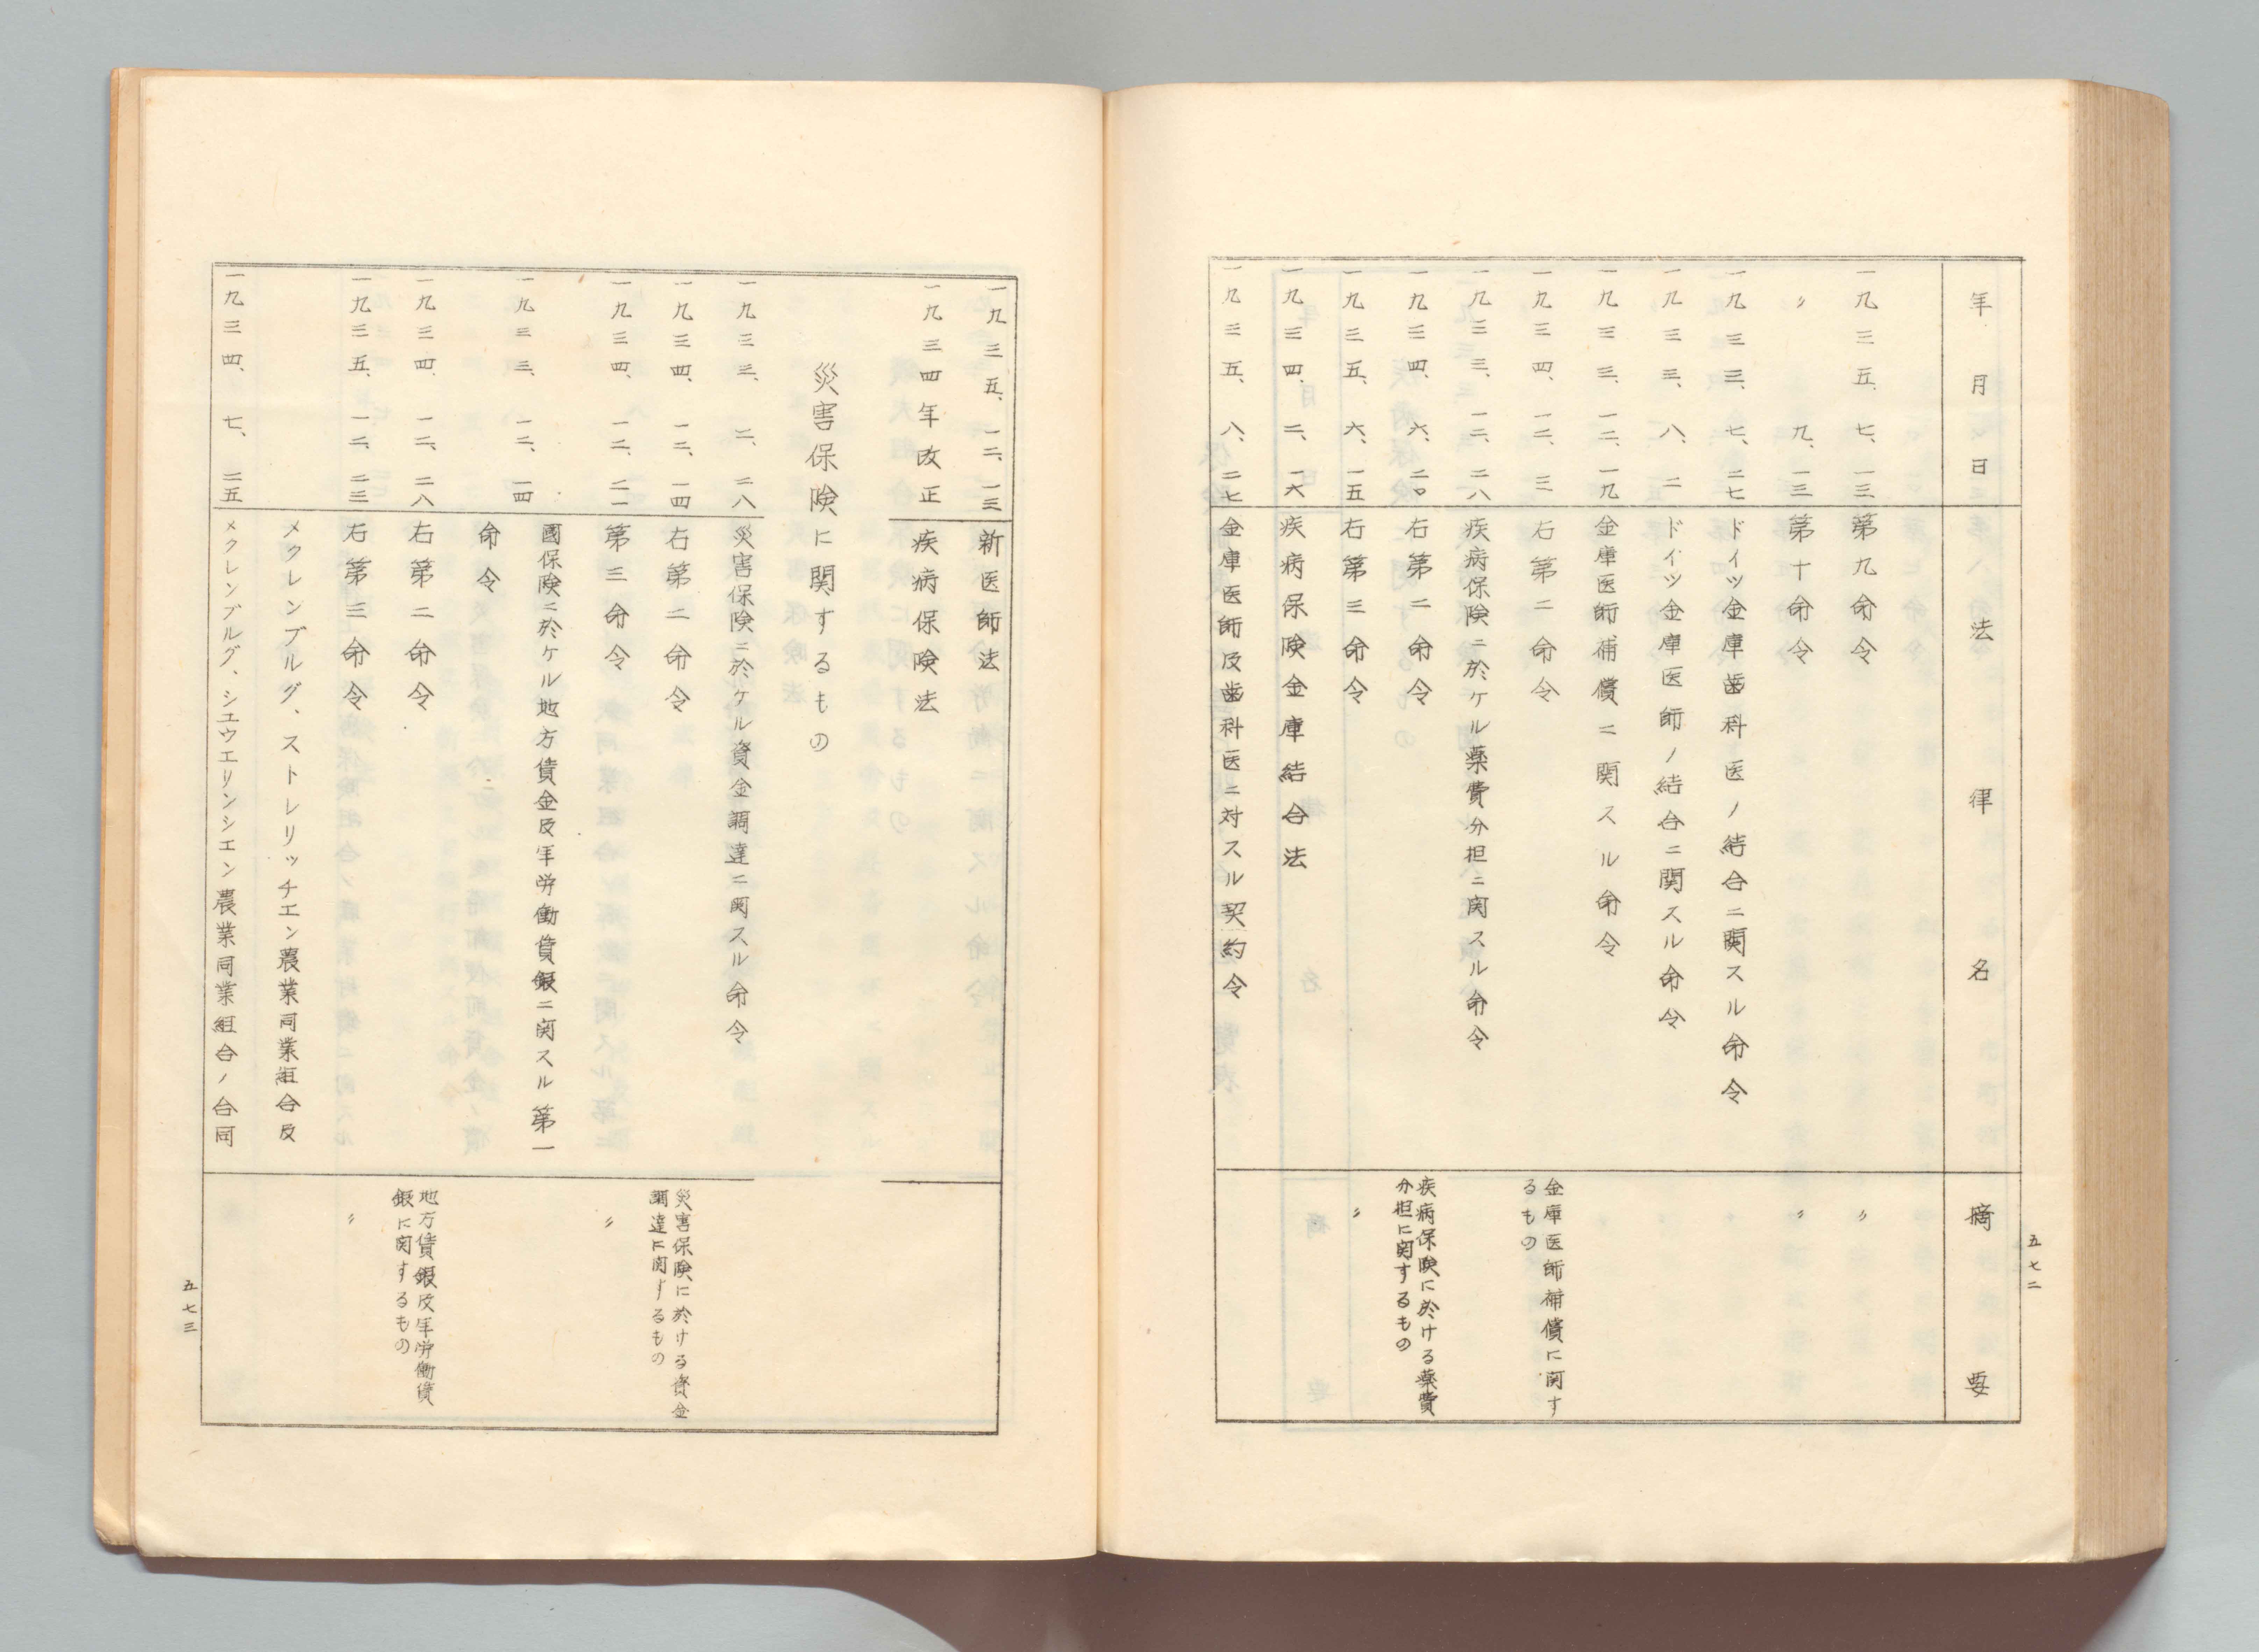 年月日 法律名 摘要
一九三五、七、一三 第九命令 〃
〃 九、一三 第十命令 〃
一九三三、七、二七 ドイツ金庫歯科医ノ結合ニ関スル命令
一九三三、八、二 ドイツ金庫医師ノ結合ニ関スル命令
一九三三、一二、一九 金庫医師補償ニ関スル命令
一九三四、一二、三 右第二命令 金庫医師補償に関するもの
一九三三、一二、二八 疾病保険ニ於ケル薬費分担ニ関スル命令
一九三四、六、二〇 右第二命令 疾病保険に於ける薬費分担に関するもの
一九三五、六、一五 右第三命令 〃
一九三四、二、一六 疾病保険金庫結合法
一九三五、八、二七 金庫医師及歯科医ニ対スル契約令
五七二
一九三五、一二、一三 新医師法
一九三四年改正 疾病保険法
災害保険に関するもの
一九三三、二、二八 災害保険ニ於ケル資金調達ニ関スル命令
一九三四、一二、一四 右第二命令 災害保険に於ける資金調達に関するもの
一九三四、一二、二一 第三命令 〃
國保険ニ於ケル地方賃金及年労働賃銀ニ関スル第一
一九三三、一二、一四 命令
一九三四、一二、二八 右第二命令 地方賃銀及年労働賃銀に関するもの
一九三五、一二、二三 右第三命令 〃
メクレンブルグ、ストレリッチエン農業同業組合及
一九三四、七、二五 メクレンブルグ、シエウエリンシエン農業同業組合ノ合同
五七三